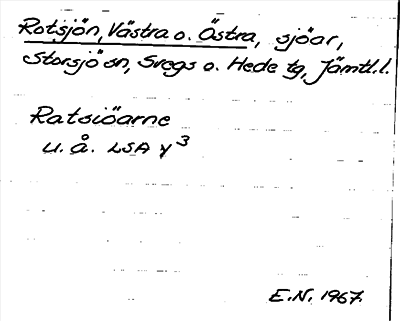 Rotsjön, Västra o. Östra, sjöar,
Storsjö sn, Svegs o. Hede tg, Jämtl.l.
Ratsiöarne
u.å. LSA y³
E.N. 1967.